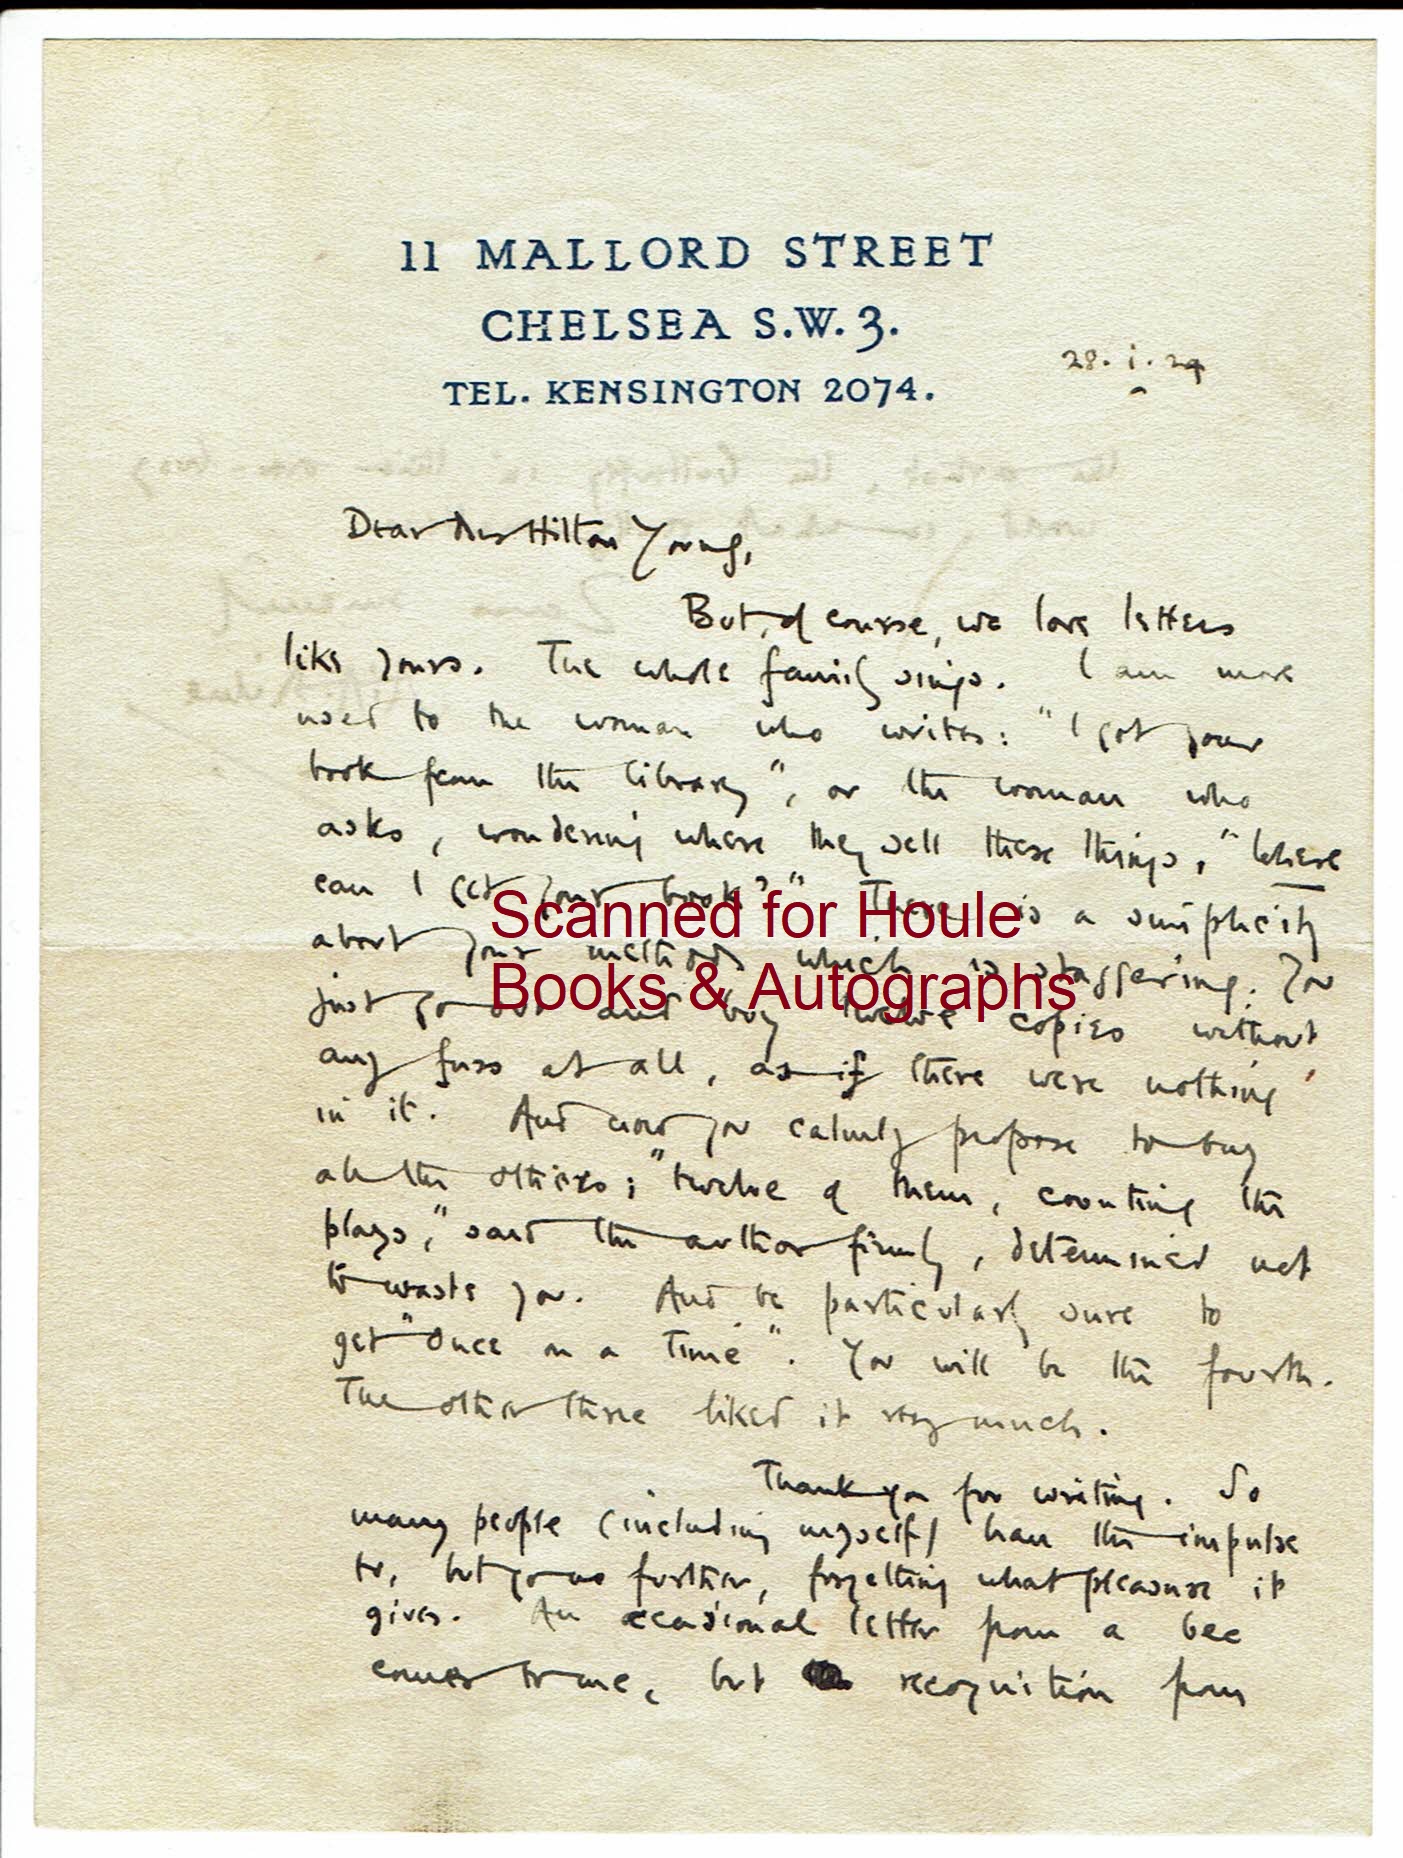 11 MALLORD STREET
CHELSEA S.W.3.
TEL. KENSINGTON 2074.
28. i. 24
Dear Mrs Hilton Young,
But, of course, we love letters
like yours. The whole family sings. I am more
used to the woman who writes: "I got your
book from the library", or the woman who
asks, wondering where they sell these things, "Where
can I get your book?" There is a simplicity
about your methods which is staggering. You
just go out and buy twelve copies without
any fuss at all, as if there were nothing
in it. And now you calmly propose to buy
all the others; "twelve of them, counting the
plays," said the author firmly, determined not
to waste you. And be particularly sure to
get "Once on a Time". You will be the fourth.
The other three liked it very much.
Thank you for writing. So
many people (including myself) have the impulse
to, but go no further, forgetting what pleasure it
gives. An occasional letter from a bee
comes to me, but recognition from
Scanned for Houle
Books & Autographs